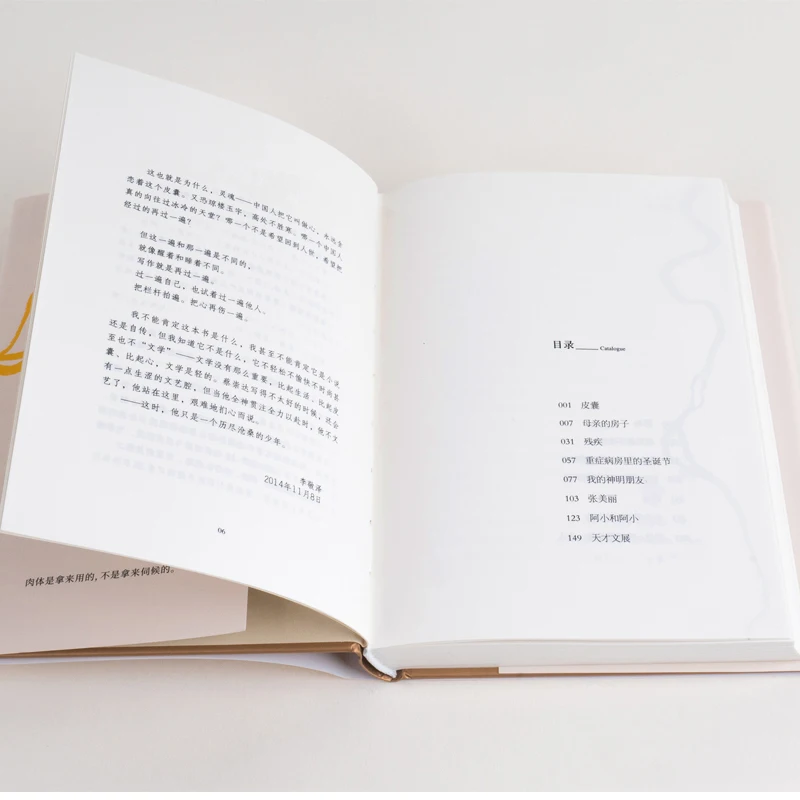 这也就是为什么，灵魂——中国人把它叫做心，永远贪
恋着这个皮囊。又恐琼楼玉宇，高处不胜寒。哪一个中国人
真的向往过冰冷的天堂？哪一个不是希望回到人世，希望把
经过的再过一遍？
但这一遍和那一遍是不同的，
就像醒着和睡着不同。
写作就是再过一遍。
过一遍自己，也试着过一遍他人。
把栏杆拍遍。把心再伤一遍。
我不能肯定这本书是什么，我甚至不能肯定它是小说
还是自传，但我知道它不是什么，它不轻松不愉快不时尚甚
至也不“文学”——文学没有那么重要，比起生活、比起皮
囊、比起心，文学是轻的。蔡崇达写得不太好的时候，还会
有一点生涩的文艺腔，但当他全神贯注全力以赴时，他不文
艺了，他站在这里，艰难地扪心而说。
——这时，他只是一个历尽沧桑的少年。
李敬泽
2014年11月8日
06
肉体是拿来用的，不是拿来伺候的。
目录 Catalogue
001 皮囊
007 母亲的房子
031 残疾
057 重症病房里的圣诞节
077 我的神明朋友
103 张美丽
123 阿小和阿小
149 天才文展